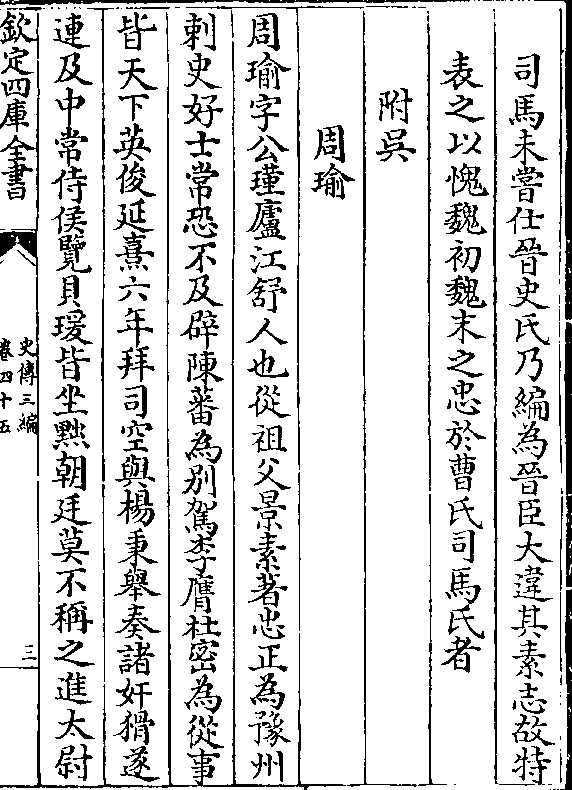 司馬未嘗仕晉史氏乃編為晉臣大違其素志故特
表之以愧魏初魏末之忠於曹氏司馬氏者
附吳
周瑜
周瑜字公瑾廬江舒人也從祖父景素著忠正為豫州
刺史好士常恐不及辟陳蕃為別駕李膺杜密為從事
皆天下英俊延熹六年拜司空與楊秉舉奏諸奸猾遂
連及中常侍侯覽貝瑗皆坐黜朝廷莫不稱之進太尉
欽定四庫全書
史傳三編
卷四十五
三